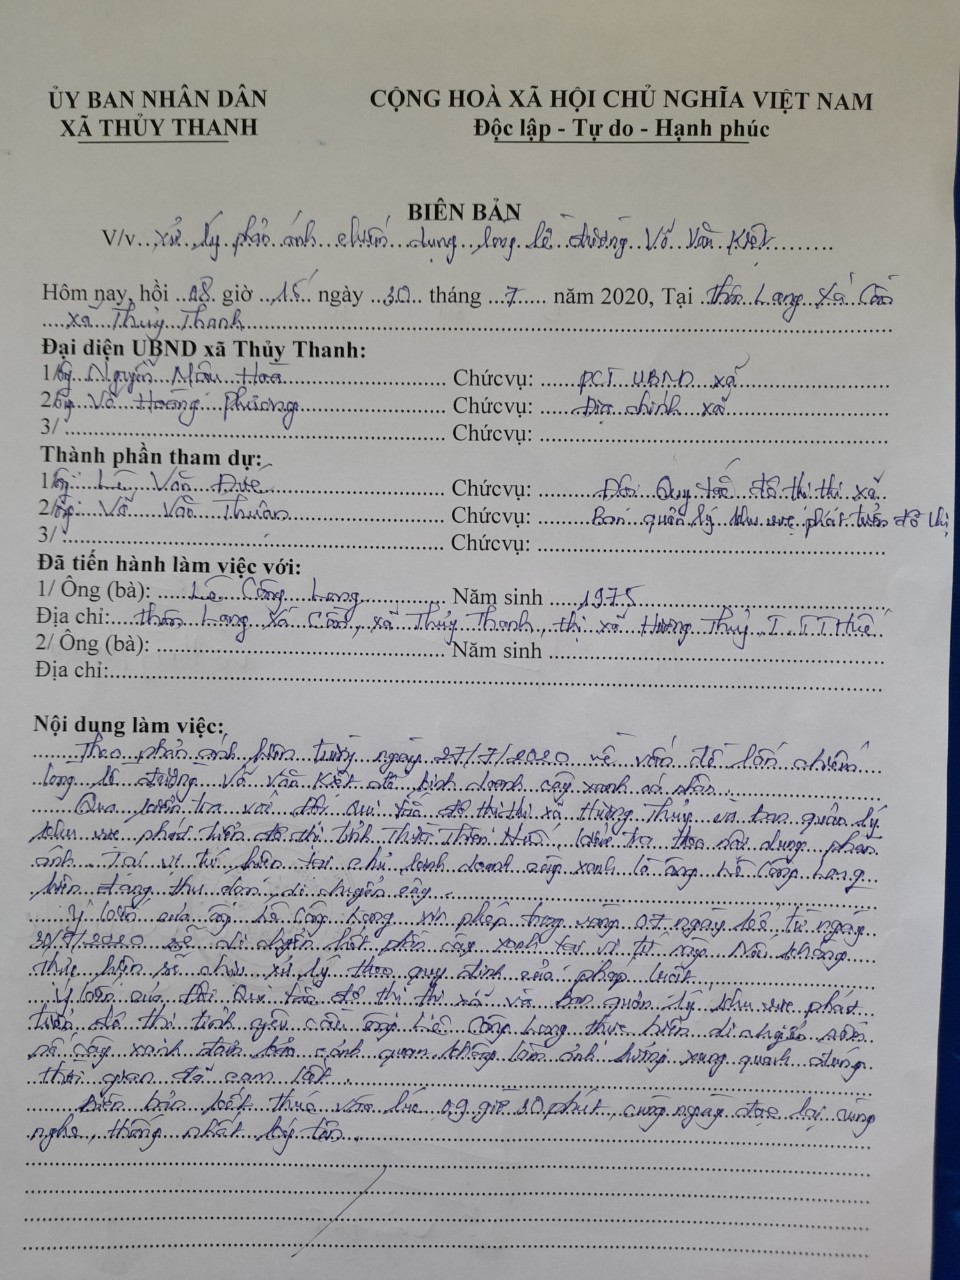 ỦY BAN NHÂN DÂN
XÃ THỦY THANH
CỘNG HOÀ XÃ HỘI CHỦ NGHĨA VIỆT NAM
Độc lập - Tự do - Hạnh phúc
BIÊN BẢN
V/v xử lý phản ánh chiếm dụng lòng lề đường Võ Văn Kiệt
Hôm nay, hồi 08 giờ 15 ngày 30 tháng 7 năm 2020, Tại thôn Lang Xá Cồn
xã Thủy Thanh
Đại diện UBND xã Thủy Thanh:
1/ Ông Nguyễn Mậu Hoà Chứcvụ: PCT UBND xã
2/ Ông Võ Hoàng Phương Chứcvụ: Địa chính xã
3/ Chứcvụ:
Thành phần tham dự:
1/ Ông Lê Văn Đức Chứcvụ: Đội Quy tắc đô thị thị xã
2/ Ông Võ Văn Thuân Chứcvụ: Ban quản lý khu vực phát triển đô thị
3/ Chứcvụ:
Đã tiến hành làm việc với:
1/ Ông (bà): Lê Công Lang Năm sinh 1975
Địa chỉ: thôn Lang Xá Cồn, xã Thủy Thanh, thị xã Hương Thủy, T. TT Huế
2/ Ông (bà): Năm sinh
Địa chỉ:
Nội dung làm việc:
Theo phản ánh hiện trường ngày 27/7/2020 về vấn đề lấn chiếm
lòng lề đường Võ Văn Kiệt để kinh doanh cây xanh
Qua kiểm tra với đội qui tắc đô thị thị xã Hương Thủy và ban quản lý
khu vực phát triển đô thị tỉnh Thừa Thiên Huế, kiểm tra theo nội dung phản
ánh. Tại vị trí hiện tại chủ kinh doanh cây xanh là ông Lê Công Lang
hiện đang thu dọn, di chuyển cây.
Ý kiến của ông Lê Công Lang xin phép trong vòng 07 ngày kể từ ngày
30/7/2020 sẽ di chuyển hết phần cây xanh tại vị trí này. Nếu không
thực hiện sẽ chịu xử lý theo quy định của pháp luật.
Ý kiến của Đội Qui tắc đô thị thị xã và Ban quản lý khu vực phát
triển đô thị tỉnh yêu cầu ông Lê Công Lang thực hiện di chuyển
số cây xanh đảm bảo cảnh quan không làm ảnh hưởng xung quanh đúng
thời gian đã cam kết.
Biên bản kết thúc vào lúc 09 giờ 10 phút, cùng ngày đọc lại cùng
nghe, thống nhất ký tên.